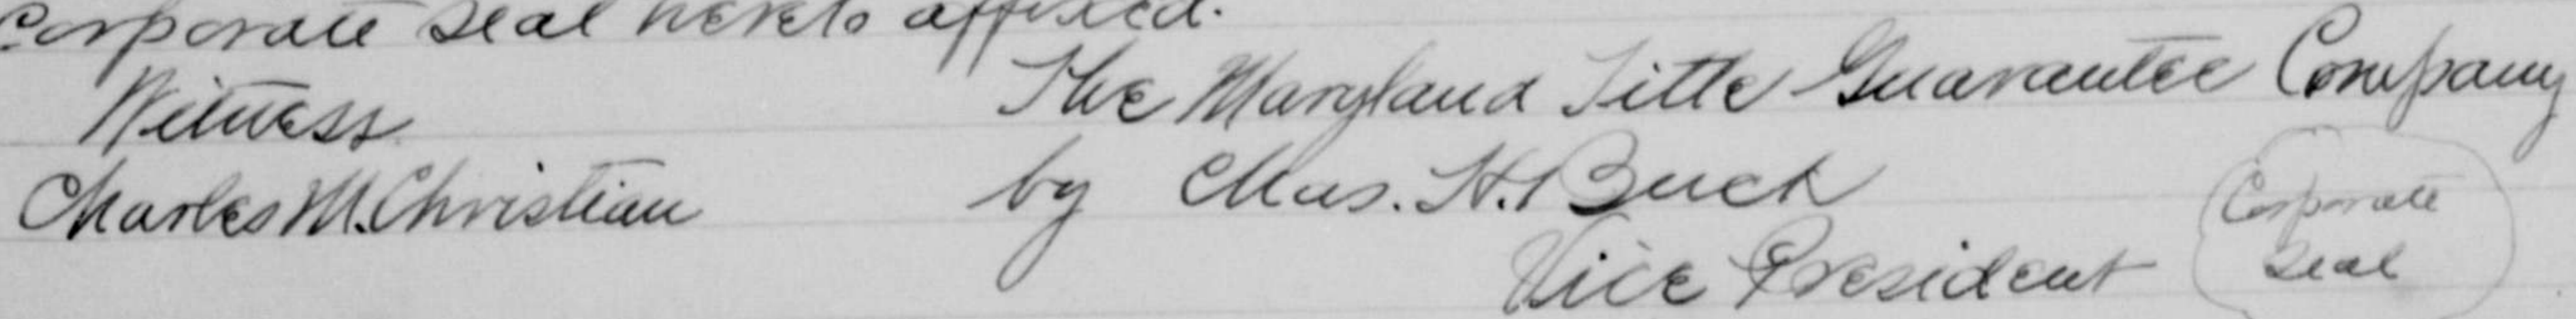 corporate seal hereto affixed.
Witness The Maryland Title Guarantee Company
Charles M. Christian by Chas. H. Buck
Vice President
Corporate
Seal